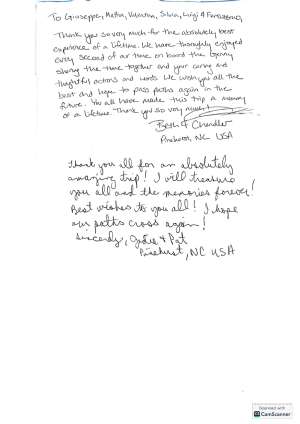 To Giuseppe, Mattia, Valentina, Silvia, Luigi &
Thank you so very much for the absolutely best
experience of a lifetime. We have thoroughly enjoyed
every second of our time on board the
sharing this time together and your caring and
thoughtful actions and words. We wish you all the
best and hope to pass paths again in the
future. You all have made this trip a memory
of a lifetime. Thank you so very much!
Beth & Chandler
Pinehurst, NC USA
Thank you all for an absolutely
amazing trip! I will treasure
you all and the memories forever!
Best wishes to you all! I hope
our paths cross again!
Sincerely, & Pat
Pinehurst, NC USA
Scanned with
CamScanner